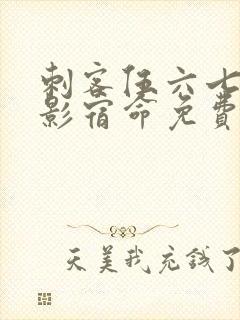 刺客伍六七
影宿命免费
天美我充钱了